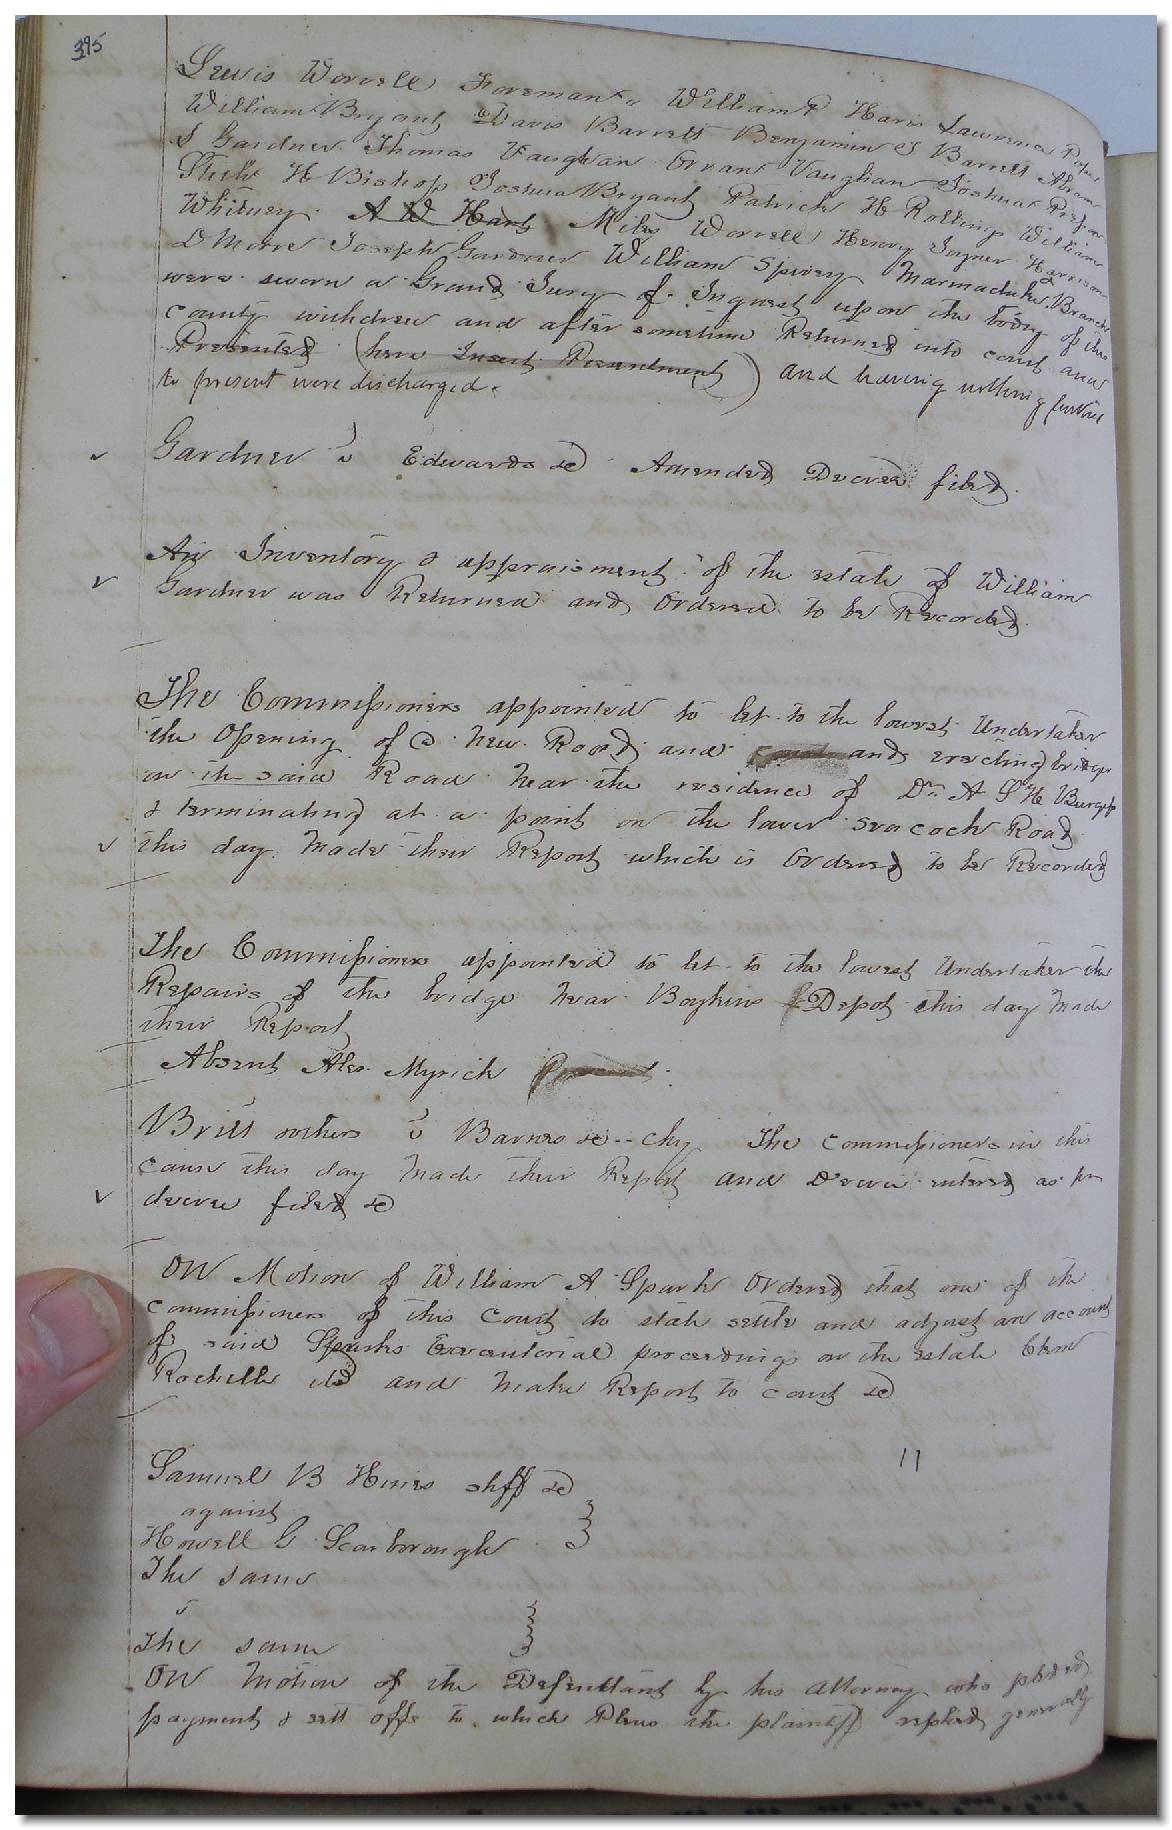 395
Lewis Worrell Foreman William P Haris Lawrence Pope
William Bryant Davis Barrett Benjamin J Barrett Abram
J Gardner Thomas Vaughan Orran Vaughan Joshua
Stith H Bishop Joshua Bryant Patrick H Rollings William
Whitney A W Hart Miles Worrell Henry Joyner Harrison
D Moore Joseph Gardner William Spivey Marmaduke Branch
were sworn a Grand Jury of Inquest upon the body of this
county withdrew and after sometime Returned into court and
Presented (here Insert Presentment) and having nothing further
to present were discharged.
Gardner v Edwards &c Amended Decree filed.
An Inventory & appraisment of the estate of William
Gardner was Returned and Ordered to be Recorded
The Commissioners appointed to let to the lowest Undertaker
the Opening of a New Road and and erecting bridges
on the said Road Near the residence of Dr. A S H Burges
& terminating at a point on the lower Seacock Road
this day Made their Report which is Ordered to be Recorded
The Commissioners appointed to let to the lowest Undertaker the
Repairs of the bridge Near Boykins Depot this day Made
their Report
Absent Alex. Myrick Present
Britt others v Barnes &c -- chy The commissioners in this
cause this day Made their Report and Decree entered as pr
decree filed &c
ON Motion of William A Spark Ordered that one of the
commissioners of this Court do state settle and adjust an account
of said Sparks Executorial proceedings on the estate Clem
Rochelle decd and Make Report to court &c
11
Samuel B Hines shff &c
against
Howell G Scarborough
The same
v
The same
ON Motion of the Defendant by his attorney who pleded
payment & sett offs to which Pleas the plaintiff replied generally